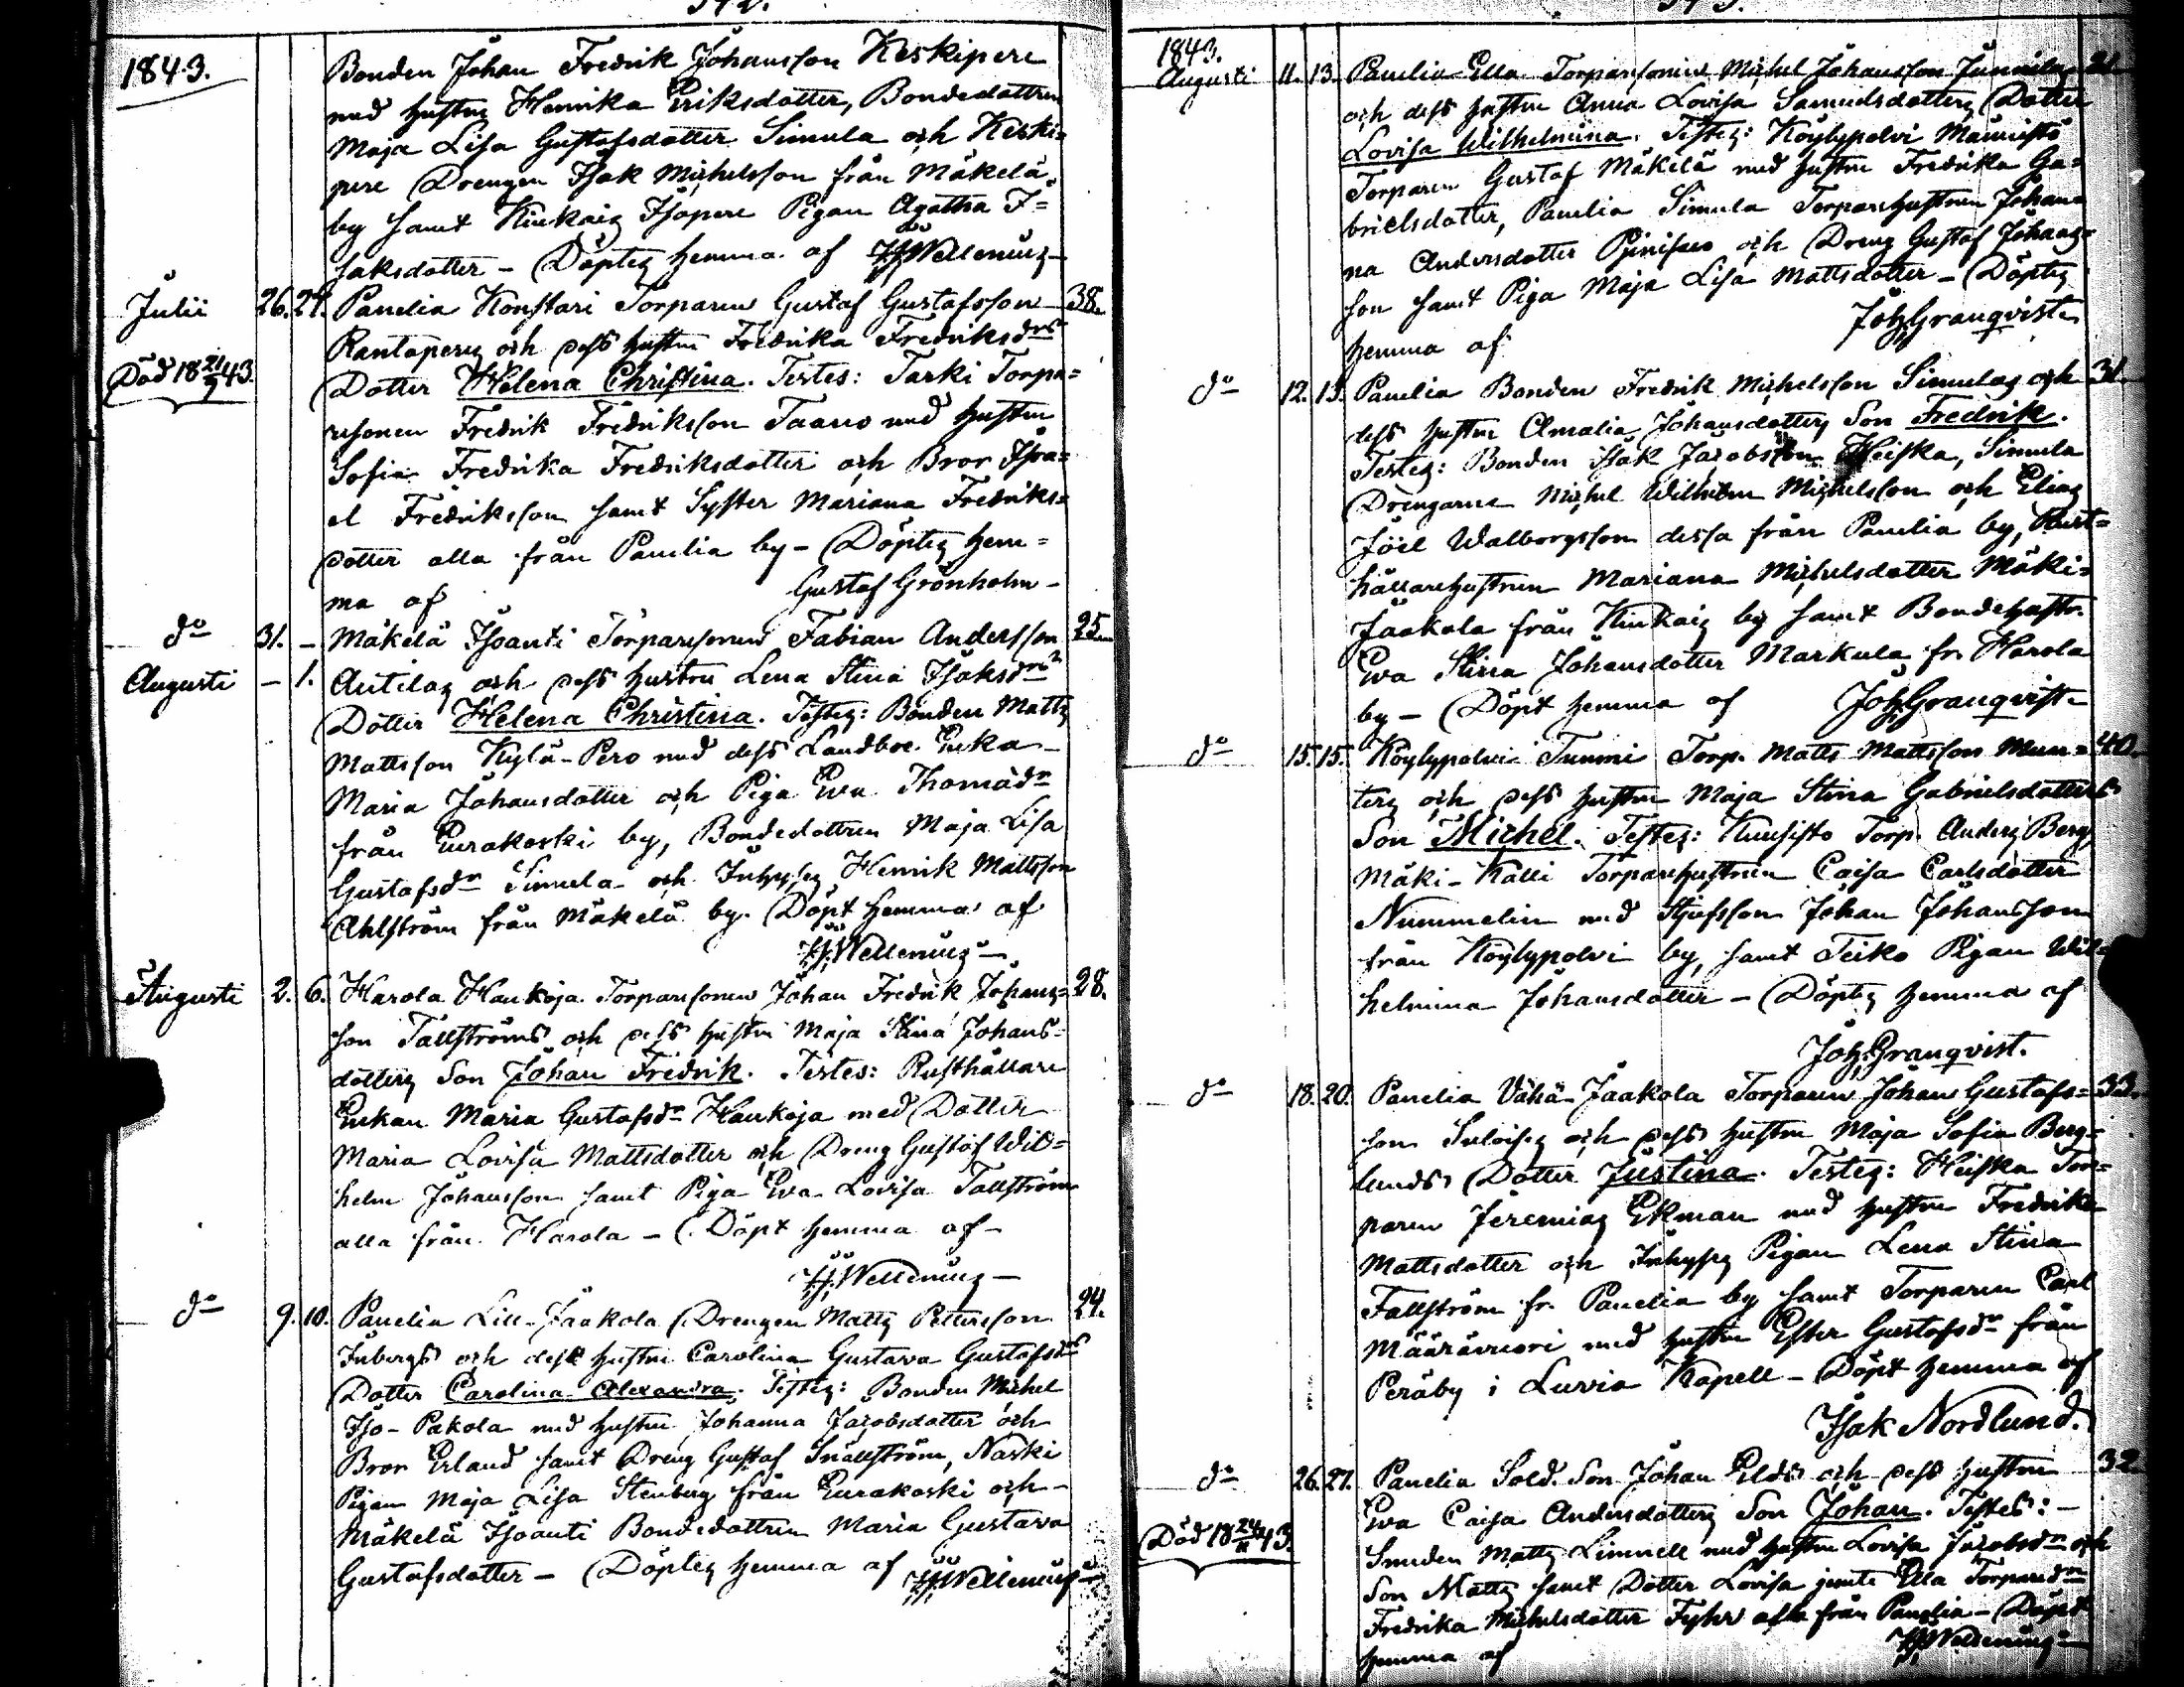 1843.
Bonden Johan Fredrik Johansson Keskipere
med hustru Henrika Eriksdotter, Bondedottren
Maja Lisa Gustafsdotter Simula och Keski=
pere Drengen Isak Michelsson från Mäkelä
by samt Kiukais Isopere Pigan Agatha I=
saksdotter – Döptes hemma af HWellenius
Julii 26. 27. Panelia Konstari Torparen Gustaf Gustafsson 38.
Rantaperes och dess hustru Fredrika Fredriksdrs
Död 18 21/9 43.
Dotter Helena Christina. Testes: Tarki Torpa=
resonen Fredrik Fredriksson Taavo med hustru
Sofia Fredrika Fredriksdotter och Bror Isra=
el Fredriksson samt Syster Mariana Fredriks=
dotter alla från Panelia by – Döptes hem=
ma af Gustaf Grönholm –
do 31. – Mäkelä Isoanti Torparesonen Fabian Andersson 25.
Augusti – 1. Antilas och dess hustru Lena Stina Isaksdrs
Dotter Helena Christina. Testes: Bonden Matts
Mattsson Kylä-Pero med dess Landboe Enka
Maria Johansdotter och Piga Eva Thomædr
från Eurakoski by, Bondedottren Maja Lisa
Gustafsdr Simula och Inhyses Henrik Mattsson
Ahlström från Mäkelä by. Döpt hemma af
HWellenius –
Augusti 2. 6. Harola Haukoja Torparesonen Johan Fredrik Johans= 28.
son Tallströms och dess hustru Maja Stina Johans=
dotters Son Johan Fredrik. Testes: Rusthållare
Enkan Maria Gustafsdr Haukoja med Dotter
Maria Lovisa Mattsdotter och Dreng Gustaf Wil=
helm Johansson samt Piga Eva Lovisa Tallström
alla från Harola – Döpt hemma af –
HWellenius –
do 9. 10. Panelia Lill-Jaakola Drengen Matts Pettersson 24.
Inbergs och dess hustru Carolina Gustava Gustafsdrs
Dotter Carolina Alexandra. Testes: Bonden Michel
Iso-Pakola med hustru Johanna Jacobsdotter och
Bror Erland samt Dreng Gustaf Snällström, Naski
Pigan Maja Lisa Stenberg från Eurakoski och
Mäkelä Isoanti Bondedottren Maria Gustava
Gustafsdotter – Döptes hemma af HWellenius
1843.
Augusti 11. 13. Panelia Ella Torparesonen Michel Johansson Junnilas 21.
och dess hustru Anna Lovisa Samuelsdotters Dotter
Lovisa Wilhelmina. Testes: Köylypolvi Männistö
Torparen Gustaf Mäkelä med hustru Fredrika Ga=
brielsdotter, Panelia Simula Torparehustrun Johan=
na Andersdotter och Dreng Gustaf Johans=
son samt Piga Maja Lisa Mattsdotter – Döptes
hemma af Joh. Granqvist
do 12. 13. Panelia Bonden Fredrik Michelsson Simulas och 31.
dess hustru Amalia Johansdotters Son Fredrik.
Testes: Bonden Isak Jacobsson Heiska, Simula
Drengarne Michel Wilhelm Michelsson och Elias
Joel Walborgsson dessa från Panelia by, Rust=
hållarehustrun Mariana Michelsdotter Mäki=
Jaakola från Kiukais by samt Bondehustr.
Eva Stina Johansdotter Markula fr. Harola
by – Döpt hemma af Joh. Granqvist
do 15. 15. Köylypolvi Tummi Torp. Matts Mattsson Mun= 40.
ters och dess hustru Maja Stina Gabrielsdotters
Son Michel. Testes: Kuusisto Torp. Anders Berg,
Mäki-Kalli Torparehustrun Caisa Carlsdotter
Nummelin med Stjufsson Johan Johansson
från Köylypolvi by, samt Teiko Pigan Wil=
helmina Johansdotter – Döptes hemma af
Joh. Granqvist.
do 18. 20. Panelia Vähä-Jaakola Torparen Johan Gustafs= 33.
son Saloises och dess hustru Maja Sofia Berg=
lunds Dotter Justina. Testes: Heiska Tor=
paren Jeremias Ekman med hustru Fredrika
Mattsdotter och Inhyses Pigan Lena Stina
Tallström fr. Panelia by samt Torparen Carl
Määrävuori med hustru Ester Gustafsdr från
Peräby i Luvia Kapell – Döpt hemma af
Isak Nordlund.
do 26. 27. Panelia Sold. Son Johan Elds och dess hustru 32.
Eva Caisa Andersdotters Son Johan. Testes: –
Död 18 24/11 43.
Smeden Matts Limnell med hustru Lovisa Jacobsdr och
Son Matts samt Dotter Lovisa jemte Ella Torparedr
Fredrika Michelsdotter Fyhr alla från Panelia – Döpt
hemma af HWellenius –